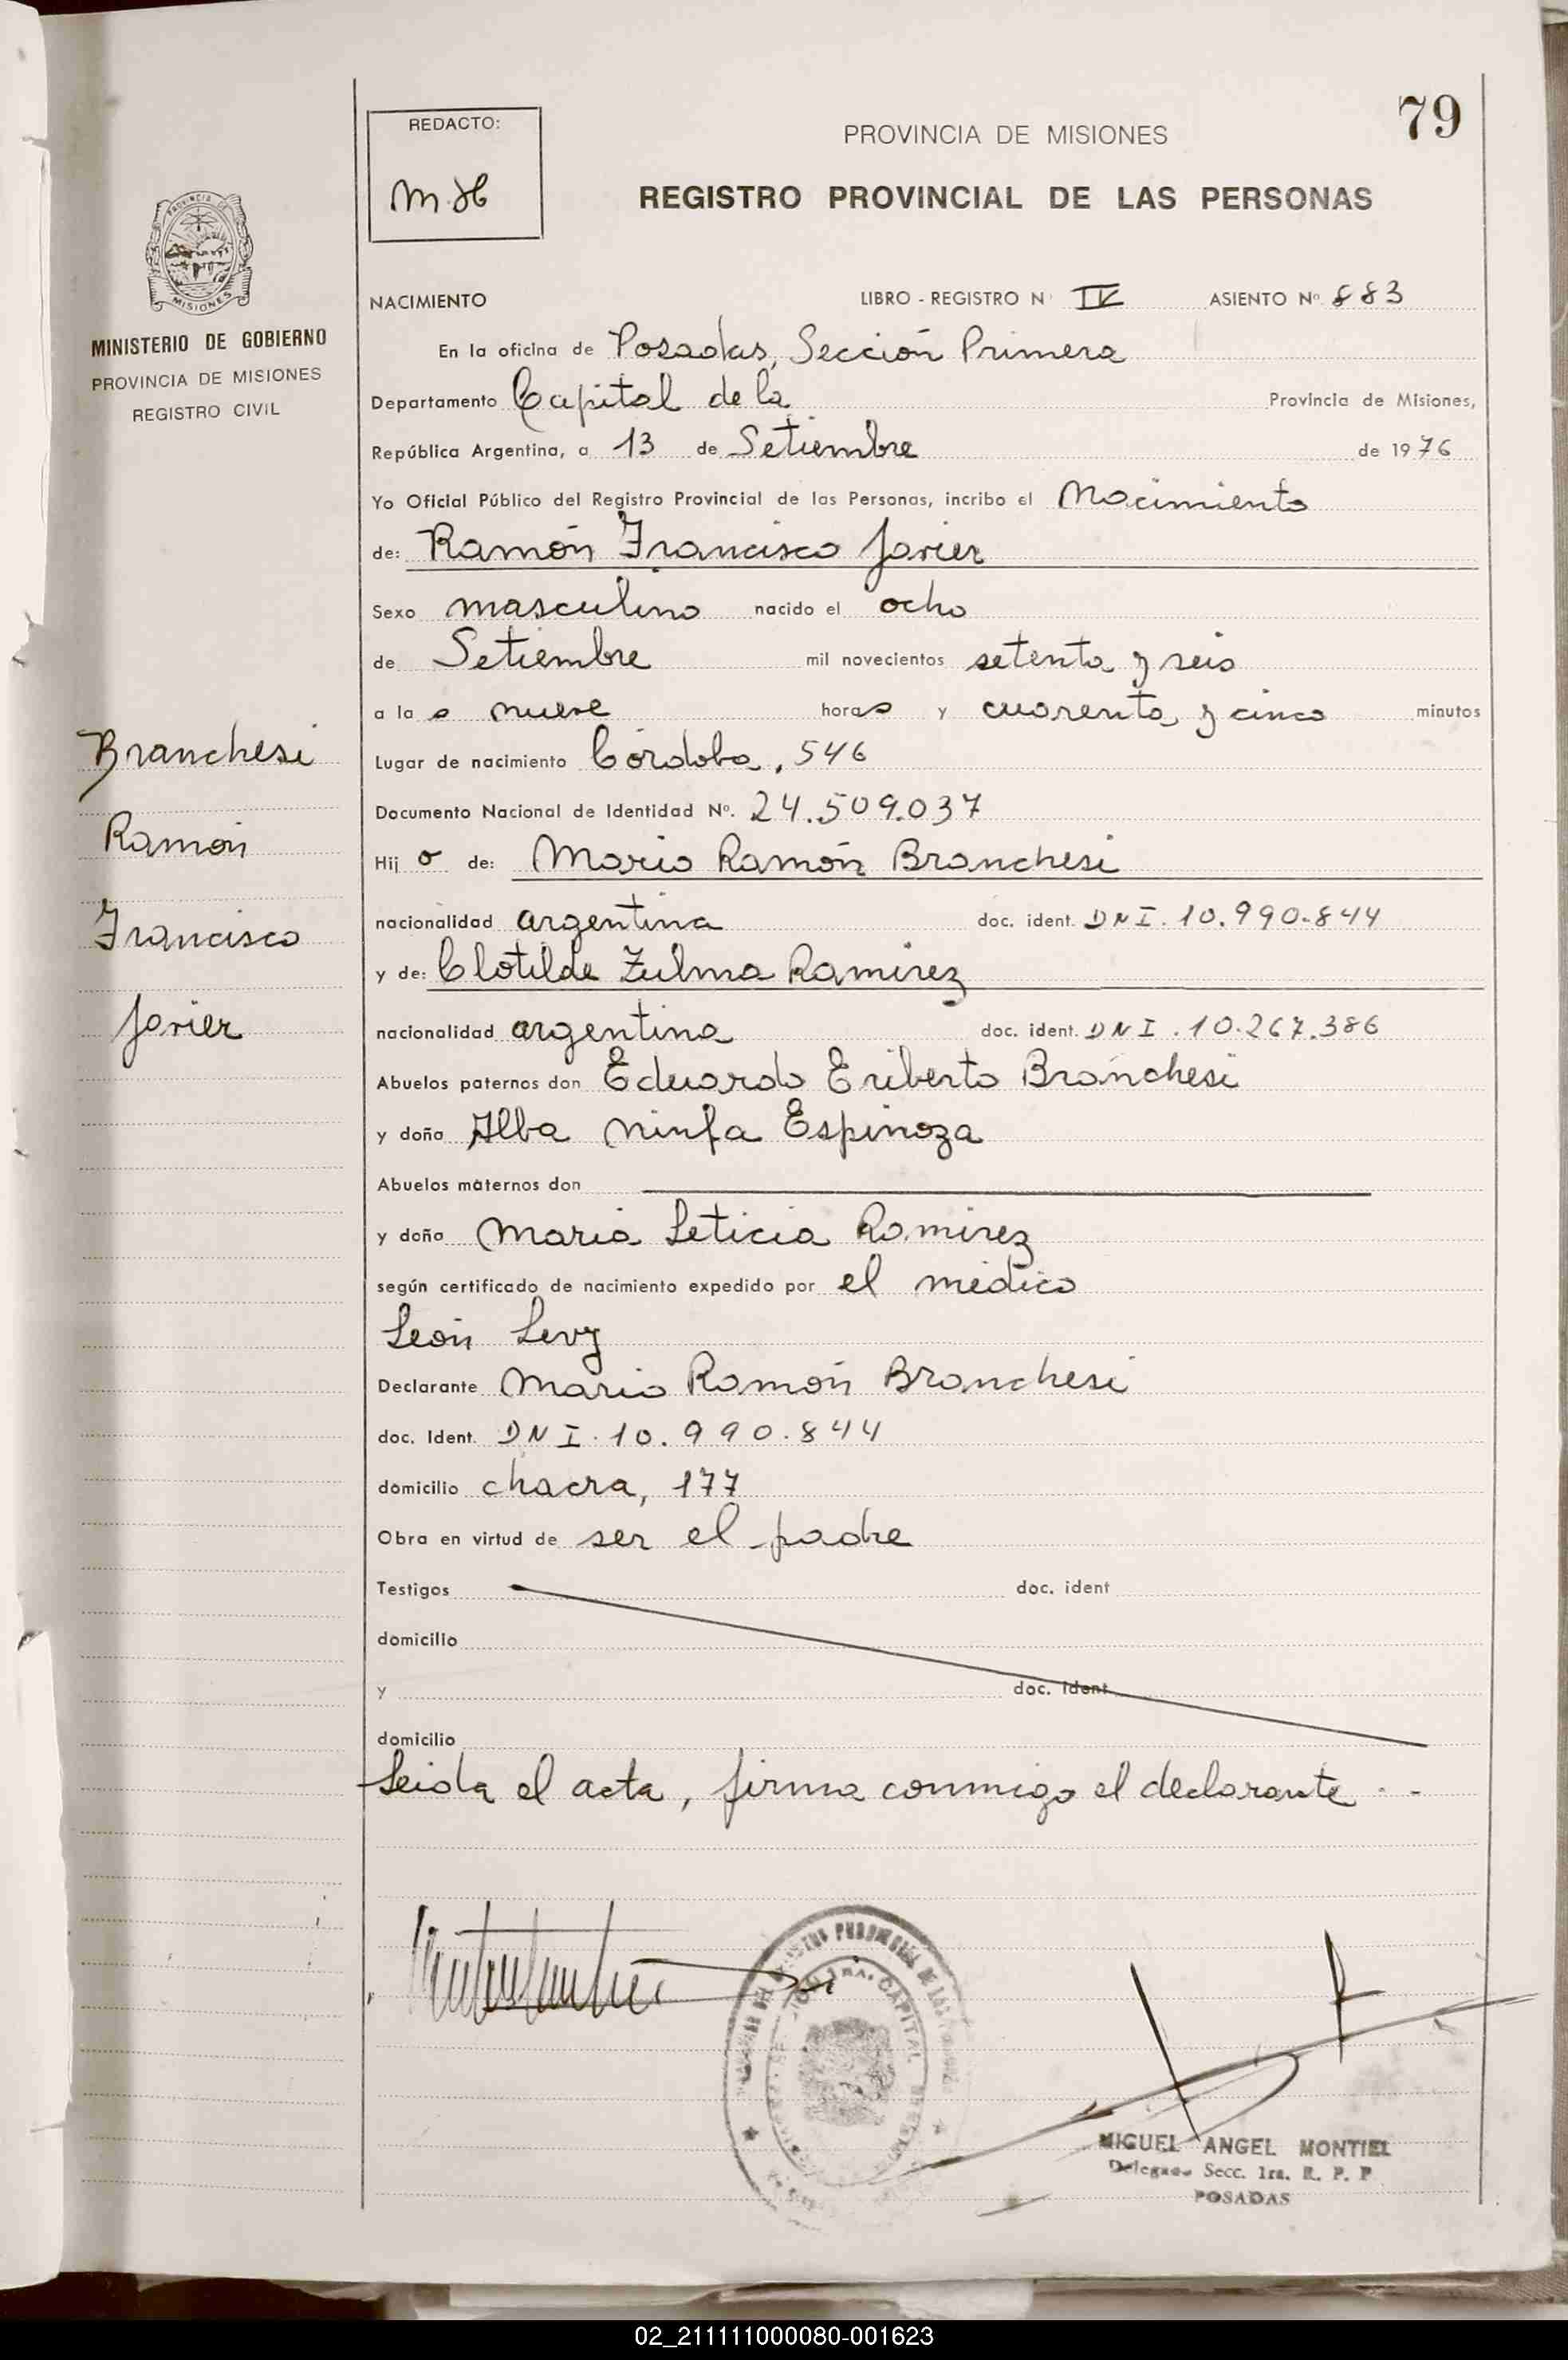 79
REDACTO:
PROVINCIA DE MISIONES
REGISTRO PROVINCIAL DE LAS PERSONAS
PROVINCIA DE
MISIONES
MINISTERIO DE GOBIERNO
PROVINCIA DE MISIONES
REGISTRO CIVIL
NACIMIENTO LIBRO - REGISTRO Nº IV ASIENTO Nº 883
En la oficina de Posadas, Sección Primera
Departamento Capital de la Provincia de Misiones,
República Argentina, a 13 de Setiembre de 1976
Yo Oficial Público del Registro Provincial de las Personas, incribo el Nacimiento
de: Ramón Francisco Javier
Sexo masculino nacido el ocho
de Setiembre mil novecientos setenta y seis
a las nueve horas y cuarenta y cinco minutos
Lugar de nacimiento Córdoba, 546
Documento Nacional de Identidad Nº. 24.509.037
Hijo de: Mario Ramón Branchesi
nacionalidad argentina doc. ident. DNI. 10.990.844
y de: Clotilde Zulma Ramirez
nacionalidad argentina doc. ident. DNI. 10.267.386
Abuelos paternos don Eduardo Eriberto Branchesi
y doña Alba Ninfa Espinoza
Abuelos maternos don
y doña María Leticia Ramirez
según certificado de nacimiento expedido por el médico
León Levy
Declarante Mario Ramón Branchesi
doc. Ident. DNI. 10.990.844
domicilio chacra, 177
Obra en virtud de ser el padre
Testigos doc. ident
domicilio
y doc. ident
domicilio
Leida el acta, firma conmigo el declarante
Branchesi
Ramón
Francisco
Javier
1ra. CAPITAL
MIGUEL ANGEL MONTIEL
Delegado Secc. 1ra. R. P. P
POSADAS
02_211111000080-001623